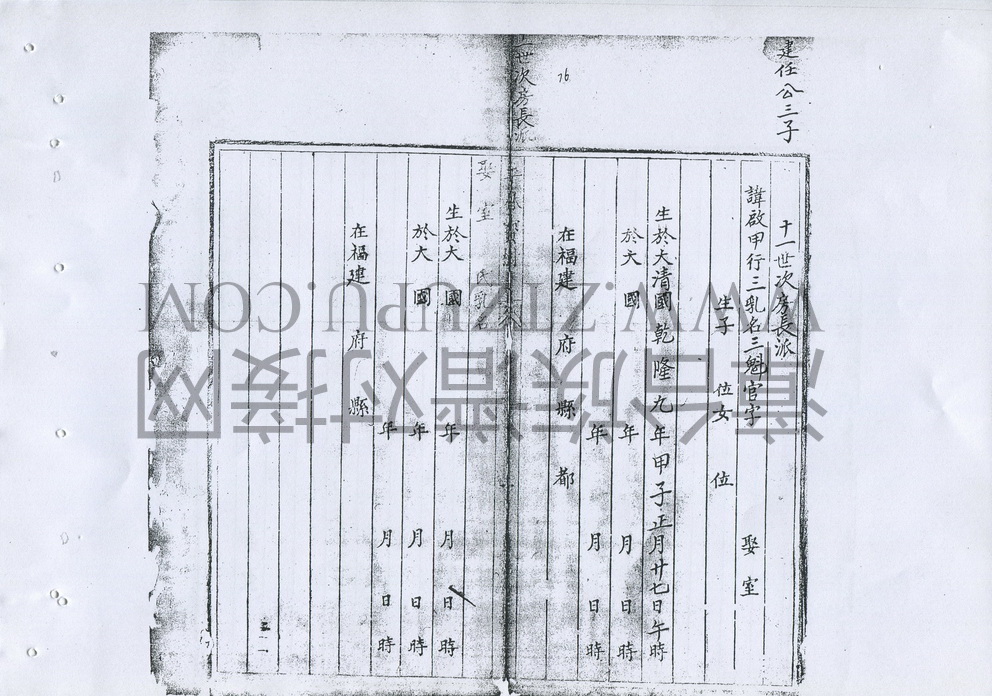 建任公三子
十一世次房長派
諱啟甲行三乳名三魁官字 娶室
生子 位女 位
生於大清國乾隆九年甲子正月廿七日午時
於大 國 年 月 日 時
年 月 日 時
在福建 府 縣 都
76
一世次房長派
娶室 氏乳名
生於大 國 年 月 日 時
於大 國 年 月 日 時
年 月 日 時
在福建 府 縣
WWW.ZTZUPU.COM
族谱对接网